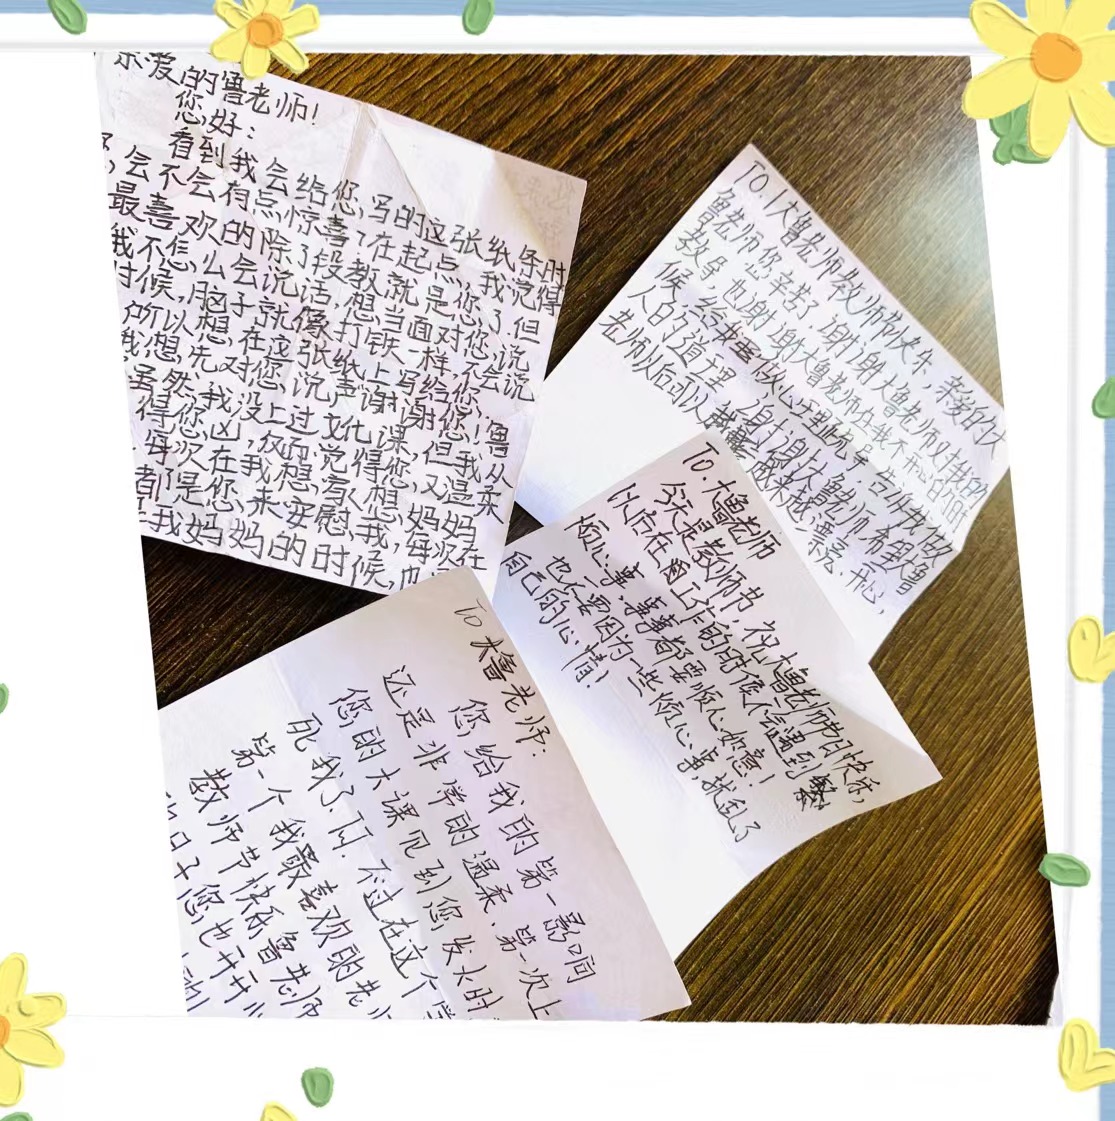 亲爱的鲁老师!
您好:
看到我会给您写的这张纸条时
,会不会有点惊喜?在起点,我觉得
最喜欢的除了段教就是您了,但
我不怎么会说话,想当面对您说
时候,脑子就像打铁一样,不会说
所以想在这张纸上写给您,
我想先对您说声谢谢您!鲁
虽然我没上过文化课,但我从
得您凶,反而觉得您又温柔
每次在我想家人想妈妈
都是您来安慰我,每次在
我妈妈的时候,也
TO.大鲁老师教师节快乐,亲爱的大
鲁老师您辛苦了,谢谢大鲁老师对我的
教导,也谢谢大鲁老师在我不开心的时
候给我
人的道理,谢谢大鲁老师,希望大鲁
老师以后可以越来越漂亮,开心,
To.大鲁老师
今天是教师节,祝大鲁老师节日快乐,
以向在留工作的时候不会遇到
烦心事,事事都要顺心如意!
也不要因为一些烦心事,就乱了
自己的心情!
To 大鲁老师:
您给我的第一影响
还是非常的温柔.第一次上
您的大课见到您发火时
死我了啊.不过在这个
第一个我最喜欢的老
教师节快乐鲁老师
日子您也开开心